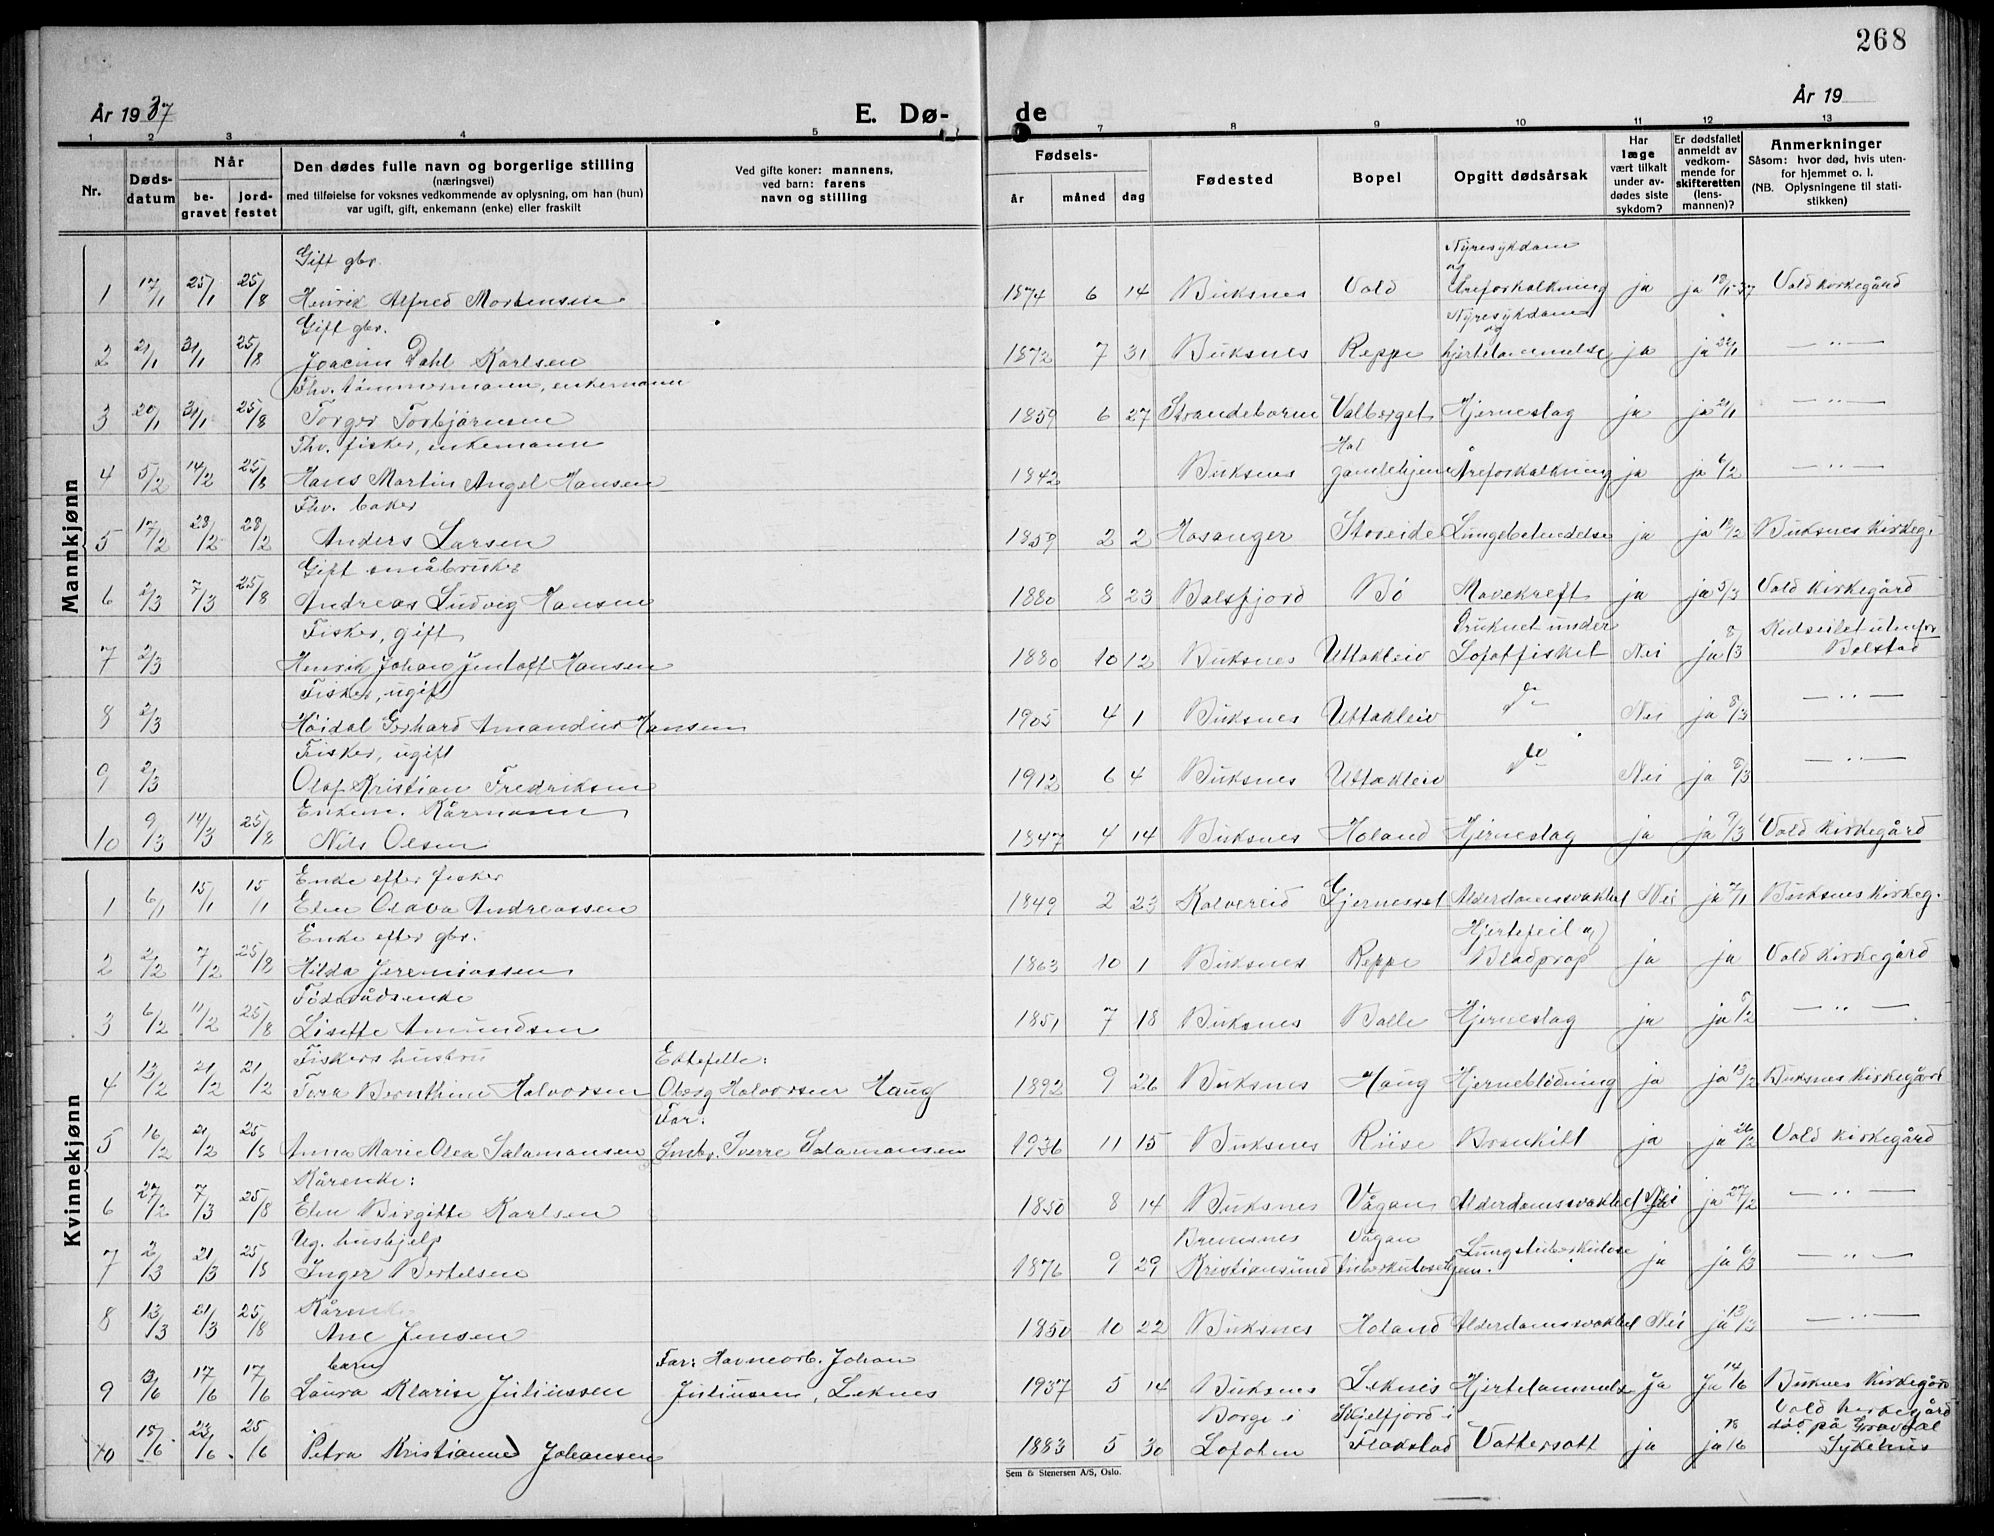 268
År 1937
E. Dø-
de
År 19
1 2 3 4 5 7 8 9 10 11 12 13
Nr.
Døds-
datum
Når
be-
gravet
jord-
festet
Den dødes fulle navn og borgerlige stilling
(næringsvei)
med tilføielse for voksnes vedkommende av oplysning, om han (hun)
var ugift, gift, enkemann (enke) eller fraskilt
Ved gifte koner: mannens,
ved barn: farens
navn og stilling
Fødsels-
år måned dag
Fødested
Bopel
Opgitt dødsårsak
Har
læge
vært tilkalt
under av-
dødes siste
sykdom?
Er dødsfallet
anmeldt av
vedkom-
mende for
skifteretten
(lens-
mannen)?
Anmerkninger
Såsom: hvor død, hvis uten-
for hjemmet o. l.
(NB. Oplysningene til stati-
stikken)
Mannkjønn
Gift gbr. Nyresykdom
og
1 17/1 25/1 25/8 Henrik Alfred Mortensen 1874 6 14 Buksnes Vold Åreforkalkning ja ja 18/1-37 Vold kirkegård
Gift gbr. Nyresykdom
og
2 21/1 31/1 25/8 Joacim Dahl Karlsen 1872 7 31 Buksnes Reppe hjertelammelse ja ja 22/1 — " —
Fhv. tömmermann, enkemann
3 20/1 31/1 25/8 Torger Torbjörnsen 1859 6 27 Strandebarm Valberget Hjerneslag ja ja 21/1 — " —
Fhv. fisker, enkemann Hol
4 5/2 14/2 25/8 Hans Martin Angel Hansen 1842 Buksnes gamlehjem Åreforkalkning ja ja 6/2 — " —
Fhv. baker
5 17/2 28/2 28/2 Anders Larsen 1859 2 2 Hosanger Storeide Lungebetendelse ja ja 18/2 Buksnes kirkeg.
Gift småbruker
6 2/3 7/3 25/8 Andreas Ludvig Hansen 1880 8 23 Balsfjord Bö Mavekreft ja ja 5/3 Vold kirkegård
Fisker, gift Druknet under Kulseilet utenfor
7 2/3 Henrik Johan Jentoft Hansen 1880 10 12 Buksnes Uttakleiv Lofotfisket Nei ja 8/3 Balstad
Fisker, ugift
8 2/3 Höidal Gerhard Amandus Hansen 1905 4 1 Buksnes Uttakleiv do Nei ja 8/3 — " —
Fisker, ugift
9 2/3 Olaf Kristian Fredriksen 1912 6 4 Buksnes Uttakleiv do Nei ja 8/3 — " —
Enkem. Kårmann
10 9/3 14/3 25/8 Nils Olsen 1847 4 14 Buksnes Holand Hjerneslag ja ja 9/3 Vold kirkegård
Kvinnekjønn
Enke efter fisker
1 6/1 15/1 15/1 Elen Olava Andreassen 1849 2 23 Kalvereid Gjernesset Alderdomssvakhet Nei ja 7/1 Buksnes kirkeg.
Enke efter gbr. Hjertefeil og
2 2/2 7/2 25/8 Hilda Jeremiassen 1863 10 1 Buksnes Reppe Blodprop ja ja Vold kirkegård
Föderådsenke
3 6/2 11/2 25/8 Lisette Amundsen 1851 7 18 Buksnes Balle Hjerneslag ja ja 8/2 — " —
Fiskers hustru Ektefelle:
4 13/2 21/2 21/2 Tora Bernthine Halvorsen Oberg Halvorsen Haug 1892 9 26 Buksnes Haug Hjerneblödning ja ja 13/2 Buksnes kirkegård
Far:
5 16/2 21/2 25/8 Anna Marie Olea Salamonsen Småbr. Sverre Salamonsen 1936 11 15 Buksnes Riise Bronkitt ja ja 26/2 Vold kirkegård
Kårenke:
6 27/2 7/3 25/8 Elen Birgitte Karlsen 1850 8 14 Buksnes Vågan Alderdomssvakhet Nei ja 27/2 — " —
Ug. hushjelp Bremsnes Vågan
7 2/3 21/3 25/8 Inger Bertelsen 1876 9 29 Kristiansund tuberkulosehjem. Lungetuberkulose ja ja 6/3 — " —
Kårenke
8 13/3 21/3 25/8 Ane Jensen 1850 10 22 Buksnes Holand Alderdomssvakhet Nei ja 13/3 — " —
barn Far: Havnearb. Johan
9 13/6 17/6 17/6 Laura Klarise Juliussen Juliussen, Leknes 1937 5 14 Buksnes Leknes Hjertelammelse Ja Ja 14/6 Buksnes kirkegård
Borge i Skjelfjord i Vold kirkegård
död på Gravdal
10 15/6 23/6 25/6 Petra Kristianne Johansen 1883 5 30 Lofoten Flakstad Vattersott ja ja 18/6 Sykehus
Sem & Stenersen A/S, Oslo.